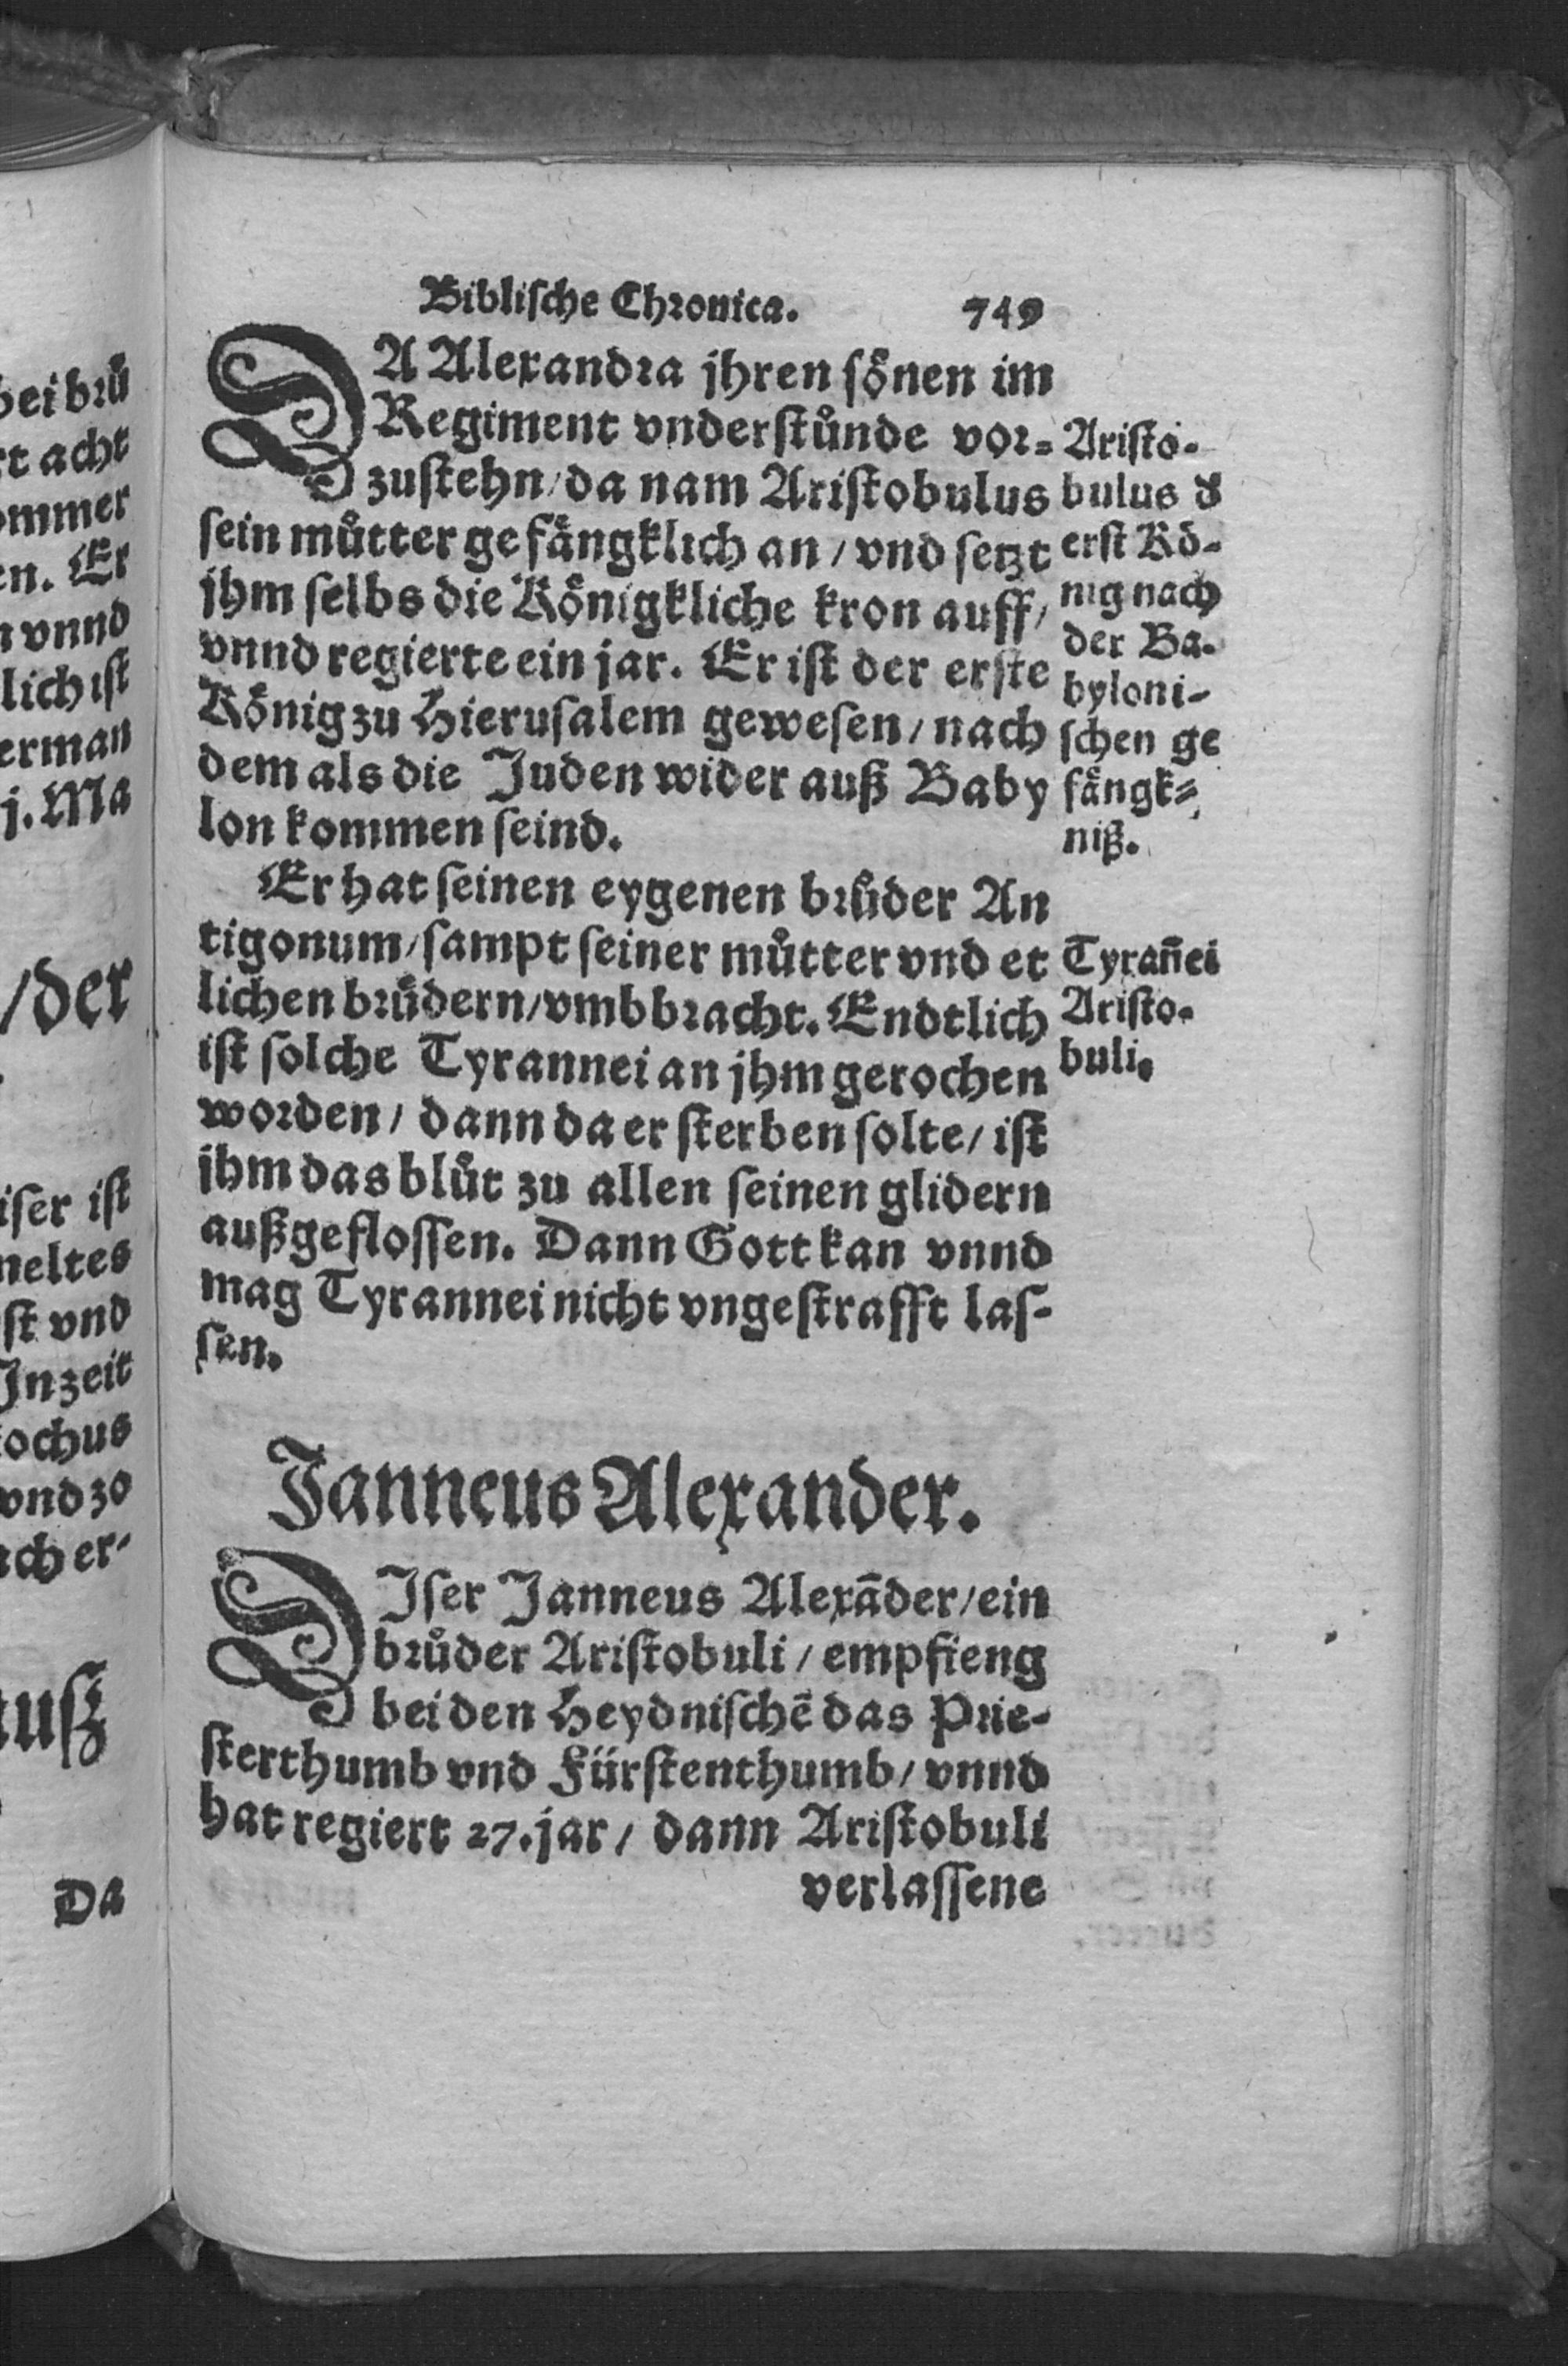 Biblische Chronica. 749
DA Alexandra jhren soͤnen im
Regiment vnderstuͤnde vor-
zustehn/ da nam Aristobulus
sein muͦtter gefaͤngklich an/ vnd setzt
jhm selbs die Koͤnigkliche kron auff/
vnnd regierte ein jar. Er ist der erste
Koͤnig zu Hierusalem gewesen/ nach
dem als die Juden wider auß Baby
lon kommen seind.
Aristo-
bulus d
erst Koͤ-
nig nach
der Ba-
byloni-
schen ge
faͤngk-
niß.
Er hat seinen eygenen bruͦder An
tigonum/ sampt seiner muͦtter vnd et
lichen bruͤdern/ vmbbracht. Endtlich
ist solche Tyrannei an jhm gerochen
worden/ dann da er sterben solte/ ist
jhm das bluͦt zu allen seinen glidern
außgeflossen. Dann Gott kan vnnd
mag Tyrannei nicht vngestrafft las-
sen.
Tyrañei
Aristo-
buli.
Janneus Alexander.
DIser Janneus Alexāder/ ein
bruͦder Aristobuli/ empfieng
bei den Heydnischē das Prie-
sterthumb vnd Fürstenthumb/ vnnd
hat regiert 27. jar/ dann Aristobuli
verlassene
acht
Er
vnnd
lich ist
j. Ma
/der
ist
vnd
Da